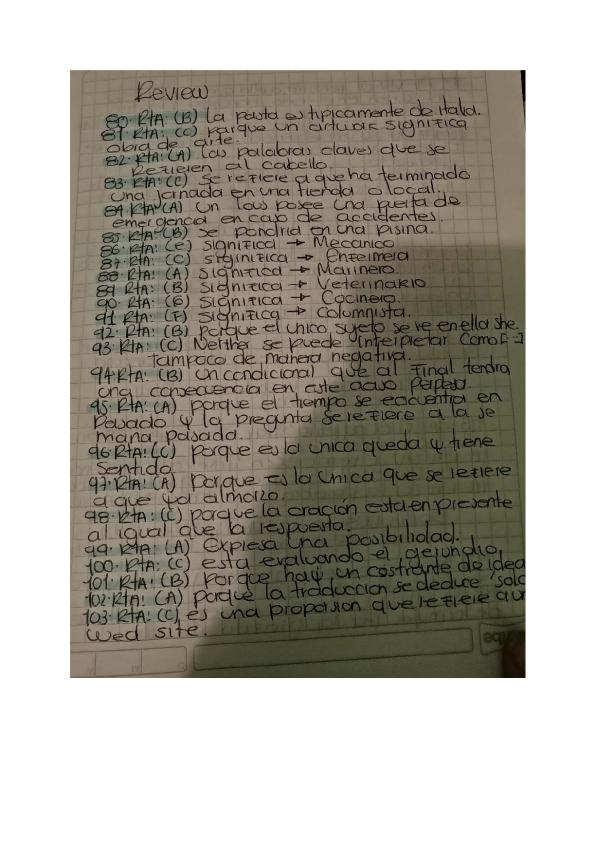 Review
80. RTA: (B) La pasta es tipicamente de italia.
81 RTA: (C) Parque un significa
obra de arte.
82. RTA: (A) Las palabras claves que se
Refieren al cabello.
83. RTA: (C) Se refiere a que ha terminado
una jornada en una tienda o local.
84 RTA (A) Un posee una puerta de
emergencia en caso de accidentes.
85. RTA (B) Se pondria en una pisina.
86. RTA: (e) Significa → Mecanico
87. RTA: (C) Significa → Enfeimera
88 RTA: (A) Significa → Marinero.
89 RTA: (B) Significa → Veterinario
90. RTA: (6) Significa → Cocinero.
91 RTA: (F) Significa → Columnista.
92. RTA: (B) Porque el unico sujeto se ve en ella she.
93. RTA: (C) Neither se puede interpretar Como [-]
tampoco de manera negativa.
94 RTA: (B) Un condicional que al final tendra
una consecuencia en este
95. RTA: (A) Porque el tiempo se encuentra en
Pasado y la pregunta se refiere a la se
mana pasada.
96. RTA: (C) Porque es la unica queda y tiene
Sentido.
97. RTA: (A) Porque es la unica que se refiere
a que ya almorzo.
98. RTA: (C) Parque la oración esta en presente
al igual que la respuesta.
99. RTA: (A) Expresa una posibilidad.
100. RTA: (C) esta evaluando el gejundio,
101. RTA: (B) Porque hay un de idea
102. RTA: (A) Porque la traduccion se deduce "solo
103. RTA: (C) es una que refiere a un
Wed site.